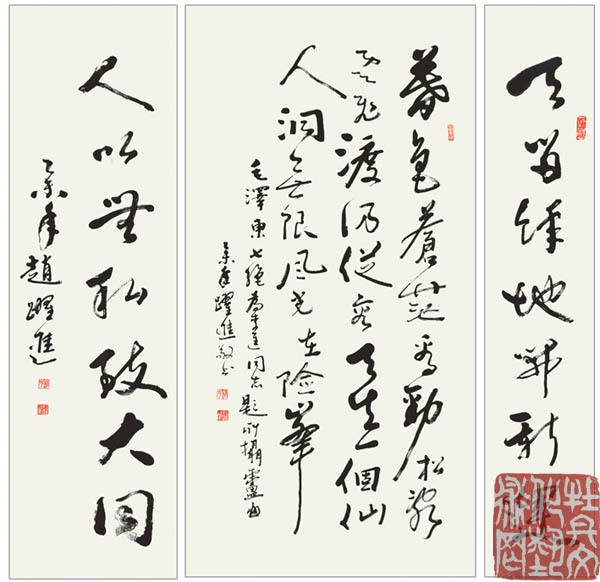 天 地 新
暮色蒼茫看勁松亂
雲飛渡仍從容天生一個仙
人洞無限風光在險峯
毛澤東七絕為李進同志題所攝廬山
年躍進敬書
人以無私致大同
年趙躍進